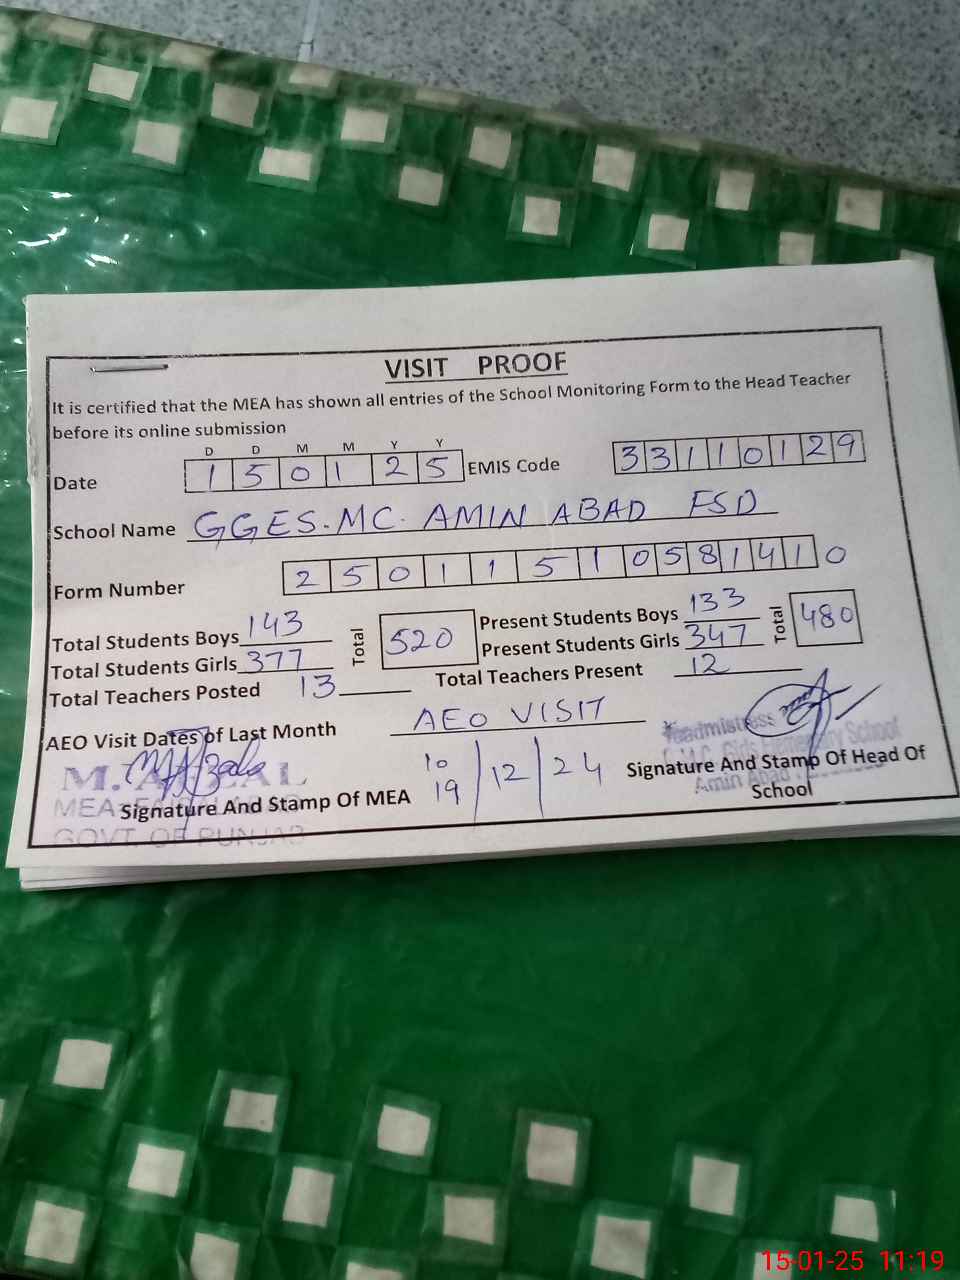 VISIT PROOF
It is certified that the MEA has shown all entries of the School Monitoring Form to the Head Teacher
before its online submission
D D M M Y Y
Date 1 5 0 1 2 5 EMIS Code 3 3 1 1 0 1 2 9
School Name GGES.MC. AMIN ABAD FSD
Form Number 2 5 0 1 1 5 1 0 5 8 1 4 1 0
Total Students Boys 143 Total 520 Present Students Boys 133 Total 480
Total Students Girls 377 Present Students Girls 347
Total Teachers Posted 13 Total Teachers Present 12
AEO Visit Dates of Last Month AEO VISIT
10
19 | 12 | 24
Headmistress
Girls Elementary School
Amin Abad
MEA
GOVT. OF PUNJAB
Signature And Stamp Of MEA
Signature And Stamp Of Head Of
School
15-01-25 11:19